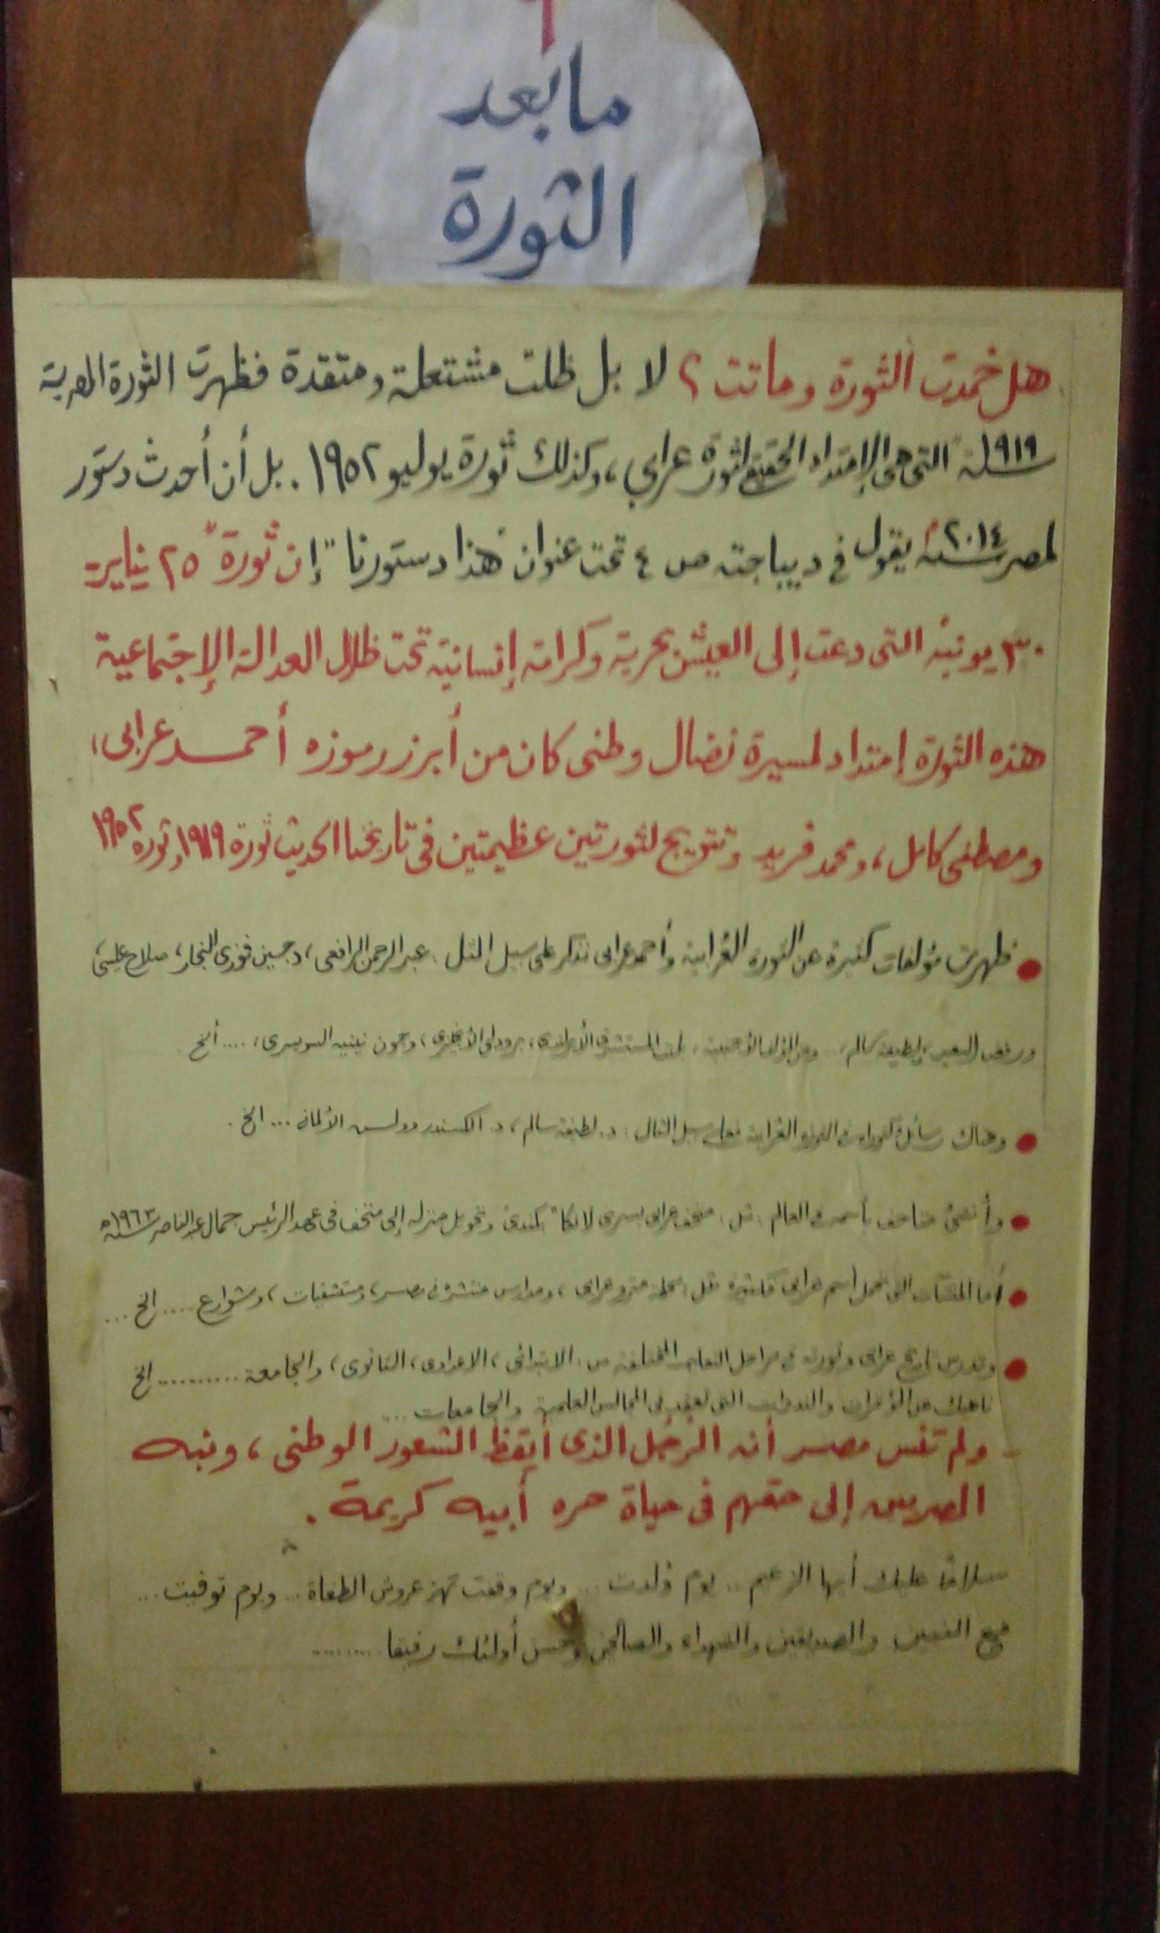 ٩
ما بعد
الثورة
هل خمدت الثورة وماتت ؟ لا بل ظلت مشتعلة ومتقدة فظهرت الثورة المصرية
سنة ١٩١٩ التى هى الإمتداد الحقيقى لثورة عرابي، وكذلك ثورة يوليو ١٩٥٢. بل أن أحدث دستور
لمصر سنة ٢٠١٤ يقول في ديباجته ص ٤ تحت عنوان "هذا دستورنا" إن ثورة "٢٥ يناير -
٣٠ يونيه التى دعت إلى العيش بحرية وكرامة إنسانية تحت ظلال العدالة الإجتماعية
هذه الثورة إمتداد لمسيرة نضال وطنى كان من أبرز رموزه أحمد عرابى،
ومصطفى كامل، ومحمد فريد وتتويج لثورتين عظيمتين فى تاريخنا الحديث ثورة ١٩١٩, وثورة ١٩٥٢
● ظهرت مؤلفات كثيرة عن الثورة العُرابية وأحمد عرابى نذكر على سبيل المثل : عبد الرحمن الرافعى، د حسين فوزى النجار، صلاح عيسى
ورفعت السعيد، لطيفة سالم، .. ومن المؤلفات الأجنبية : بلنت المستشرق الأيرلندى، برودلى الأنجليزى، وجون نينيه السويسرى، .... ألخ .
● وهناك رسائل دكتوراه عن الثورة العُرابية فعلى سبيل المثال : د. لطيفة سالم، د. الكسندر الألمانى ... الخ .
● وأنشئ متاحف بأسمه فى العالم : مثل : متحف عرابى بسرى لانكا "بكندى" وتحويل منزله إلى متحف فى عهد الرئيس جمال عبد الناصر سنة ١٩٦٣م
● أما المنشآت التى تحمل اسم عرابى فكثيرة مثل : محطة مترو عرابى، ومدارس منتشرة فى مصر، ومستشفيات، وشوارع .... الخ ...
● وتدرس تاريخ عرابى وثورته فى مراحل التعليم المختلفة من : الابتدائى، الاعدادى، الثانوى، والجامعة .......... الخ
ناهيك عن المؤتمرات والندوات التى تعقد فى المجالس العلمية والجامعات ...
- ولم تنس مصر أنه الرجل الذى أيقظ الشعور الوطنى، ونبه
المصريين إلى حقهم فى حياة حره أبيه كريمة .
سلاماً عليك أيها الزعيم .. يوم وُلدت ... ويوم وقفت تهز عروش الطغاة .. ويوم توفيت ...
مع النبيين والصديقين والشهداء والصالحين وحسن أولئك رفيقا .........